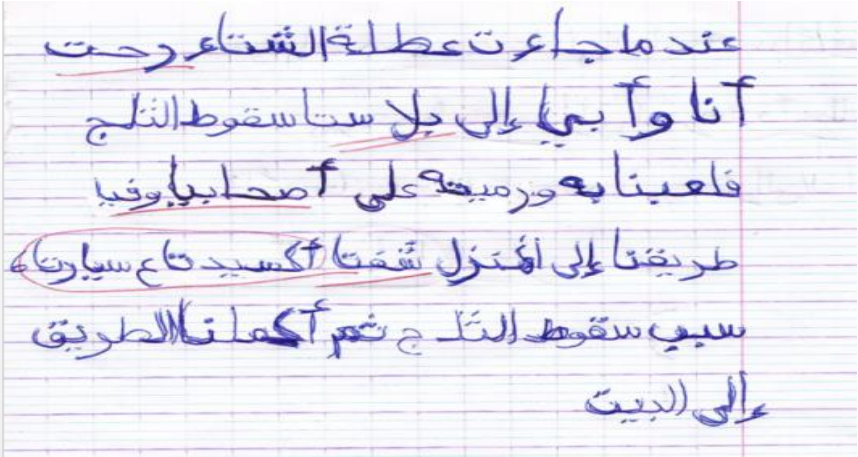 عندما جاءت عطلة الشتاء رحت
أنا وأبي إلى بلاستا سقوط الثلج
فلعبنا به ورميته على أصحابيا وفيا
طريقنا إلى المنزل شفتا أكسيد تاع سيارتاه
سبب سقوط الثلج ثم أكملنا الطريق
إلى البيت